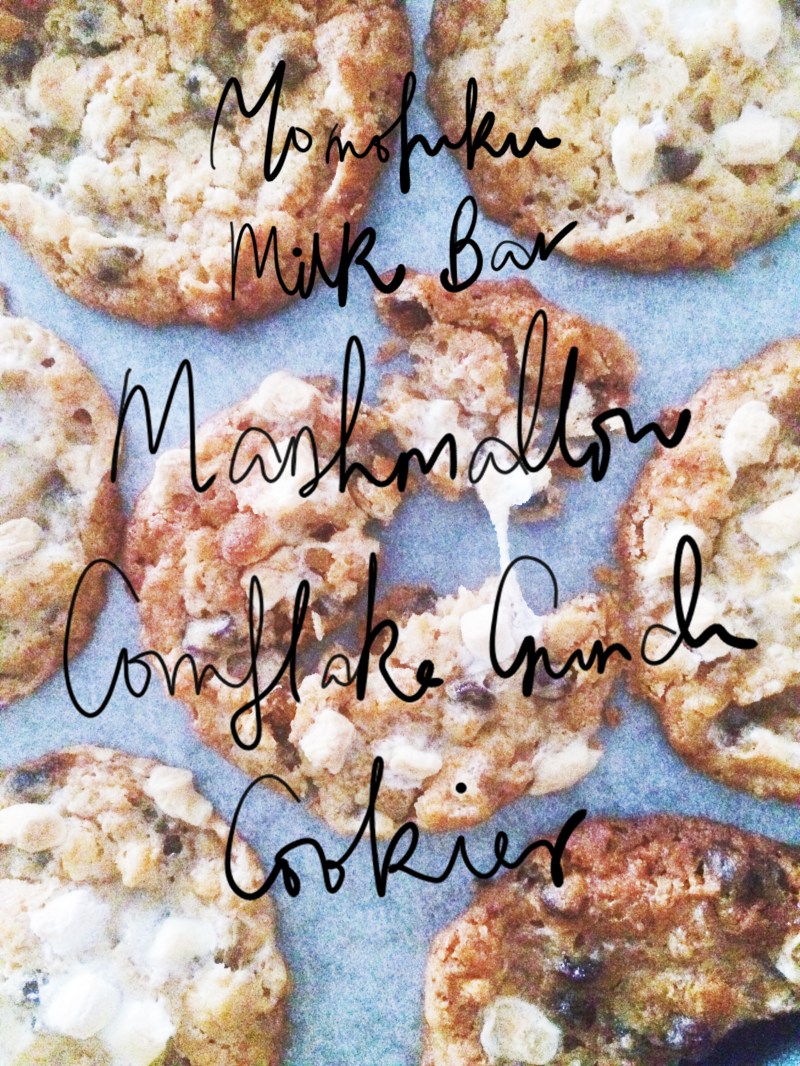 Momofuku
Milk Bar
Marshmallow
Cornflake Crunch
Cookies